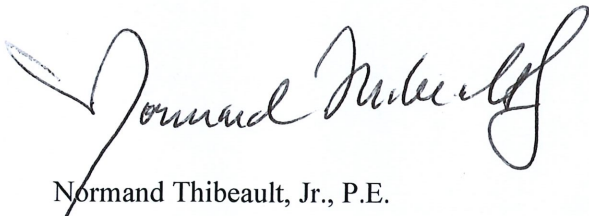 Normand Thibeault
Normand Thibeault, Jr., P.E.